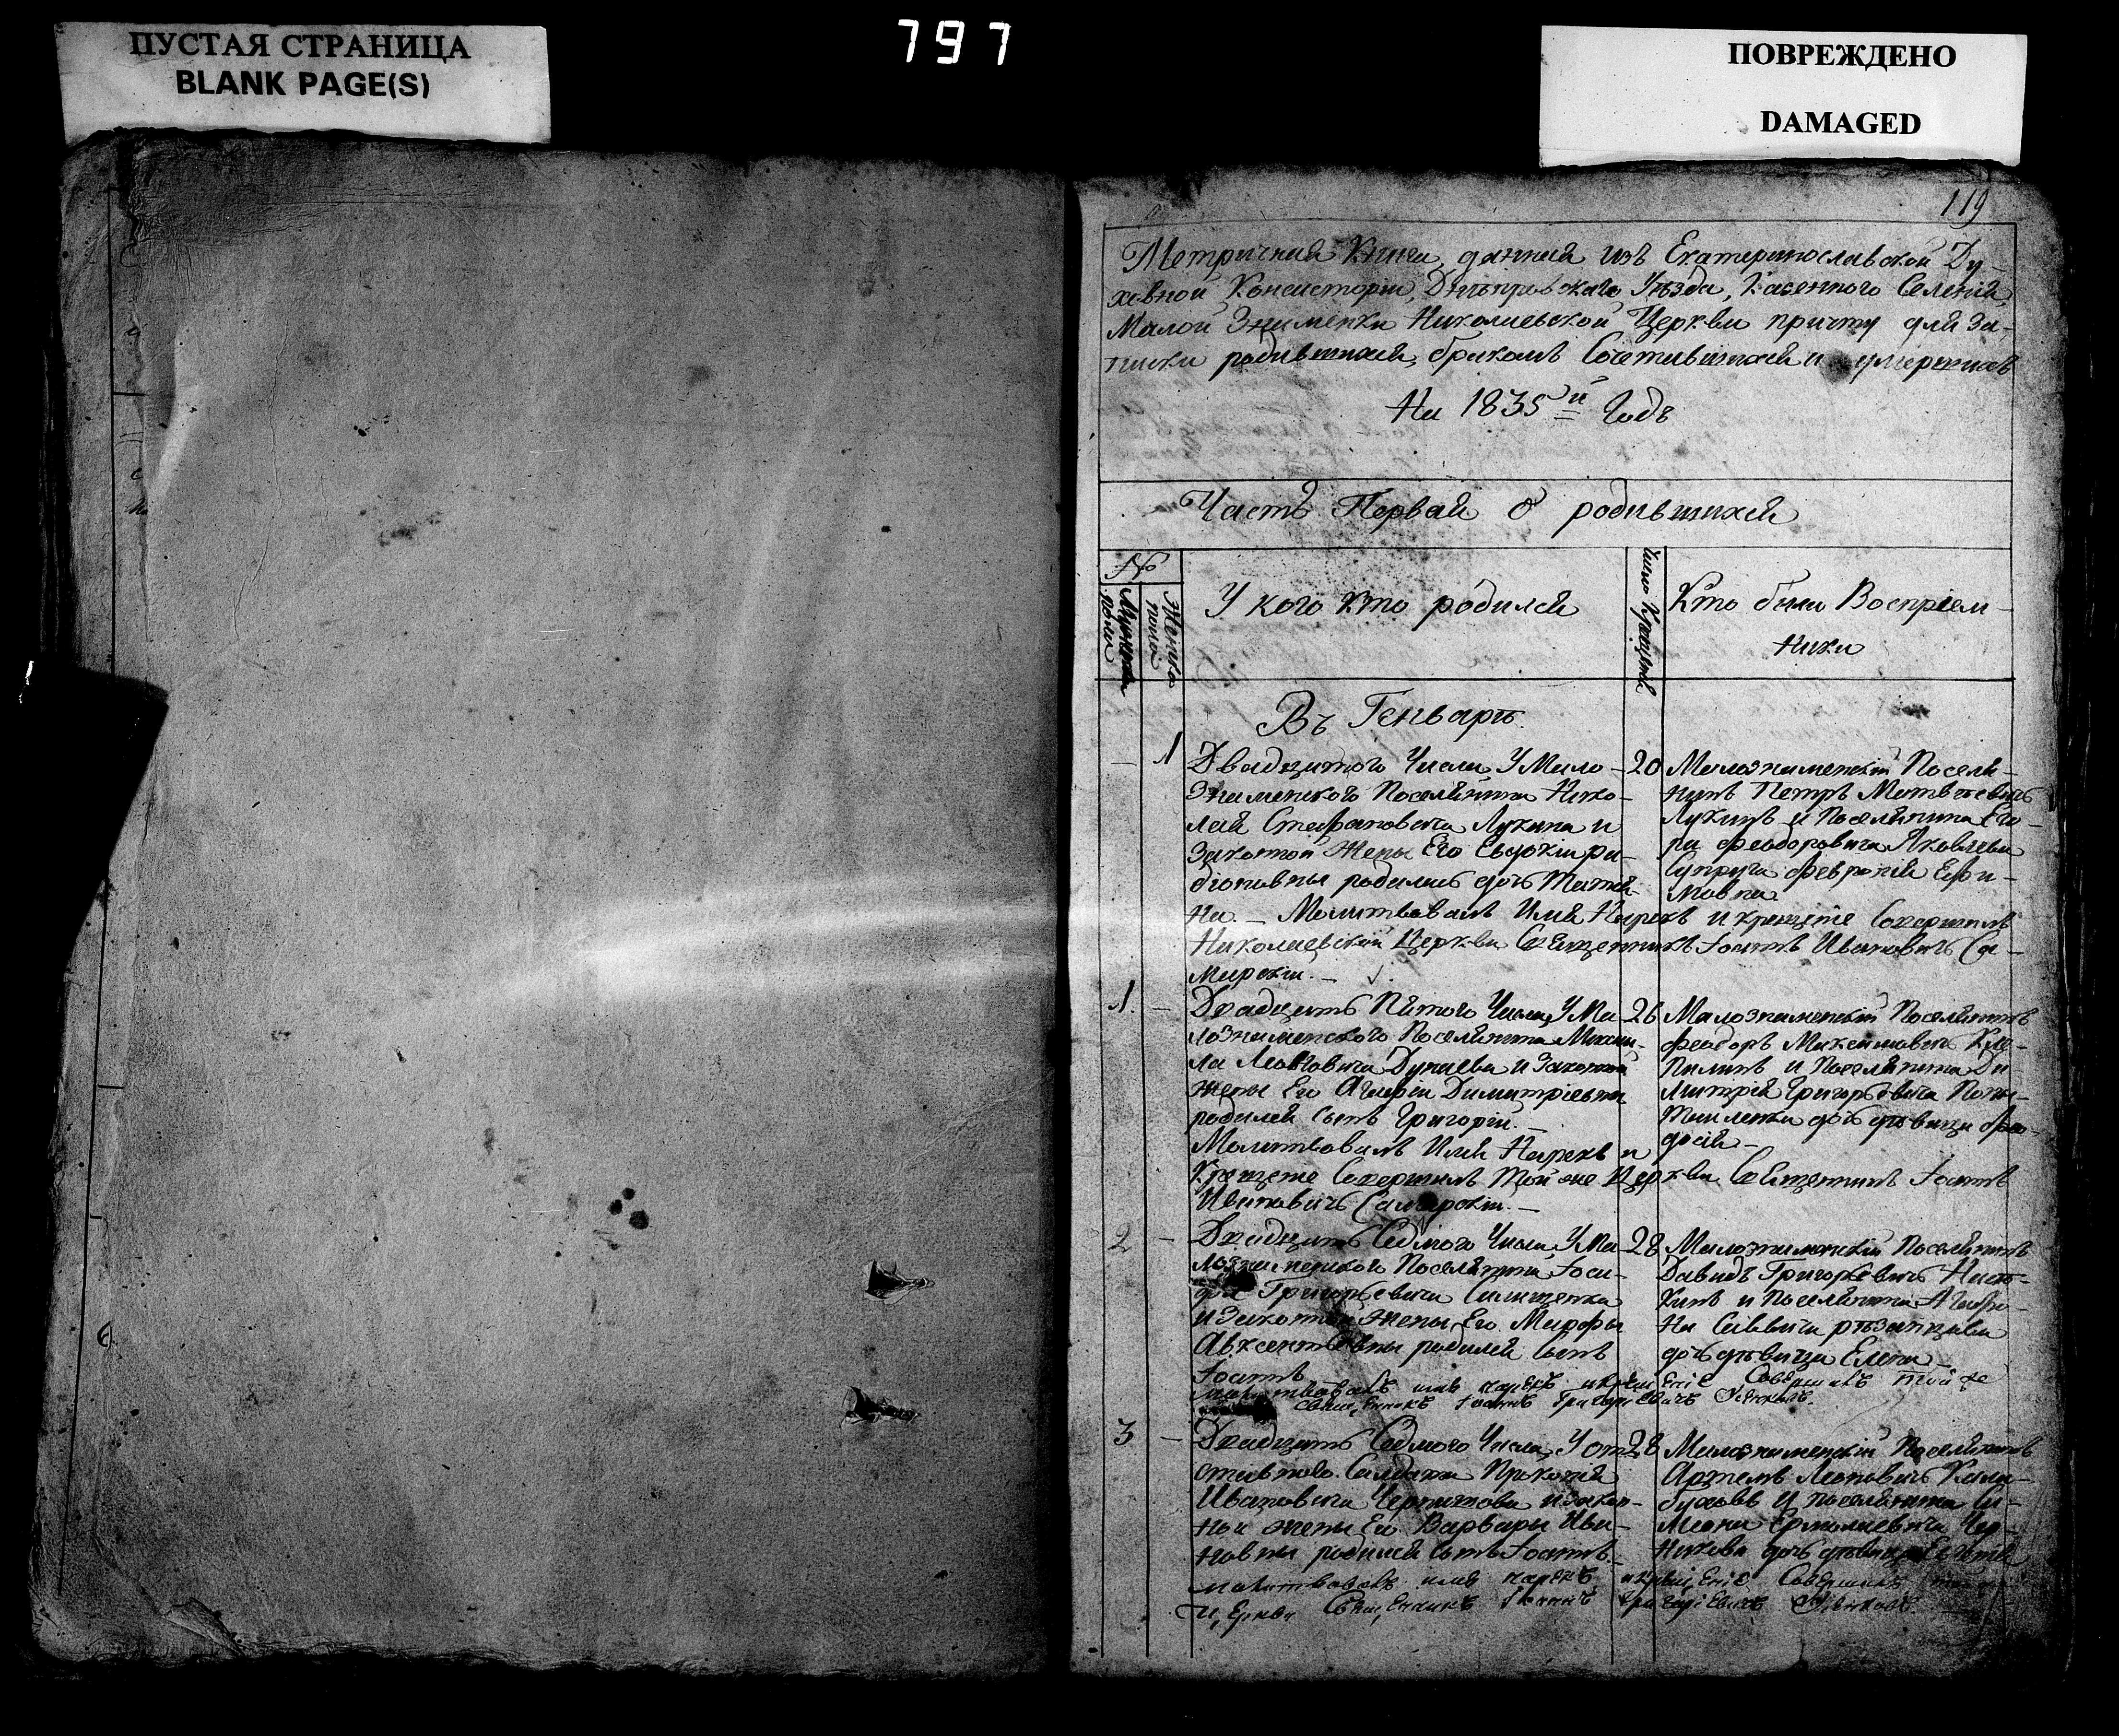 ПУСТАЯ СТРАНИЦА
BLANK PAGE(S)
797
ПОВРЕЖДЕНО
DAMAGED
119
Метричная Книга, данная изъ Екатеринославской Ду-
ховной Консисторіи, Днѣпровскаго Уѣзда, Казенного Селенія
Малой Знаменки Николаевской Церкви причту для за-
писки родившихся, бракомъ Сочетавшихся и умершихъ
На 1835й Годъ
Часть Первая о родившихся
№
Мужеска пола
Женска пола
У кого кто родился
Число Крещенія
Кто были Воспріем-
ники
Въ Генварѣ
1
Двадцятого Числа, У Мало-
знаменского Поселянина Нико-
лая Стефановича Лукина и
Законной Жены Его Евдокіи Ра-
діоновны родилась дочь Татия-
на. — Молитвовалъ Имя Нарекъ и крещеніе Совершилъ
Николаевской Церкви Священникъ Іоаннъ Ивановичъ Са-
марскій. —
20
Малознаменскій Поселя-
нинъ Петръ Матвѣевичъ
Лукинъ и Поселянина Его-
ра Феодоровича Яковлева
Супруга Феоронія Ефи-
мовна
1
Двадцять Пятого Числа, У Ма-
лознаменского Поселянина Михаи-
ла Леонтовича Дунаева и Законной
Жены Его Агафіи Димитріевны
родился сынъ Григорій. —
Молитвовалъ Имя Нарекъ и
Крещеніе Совершилъ Той же Церкви Священникъ Іоаннъ
Ивановичъ Самарскій. —
26
Малознаменскій Поселянинъ
Феодоръ Максимовичъ
и Поселянина Ди-
митрія Григорьевича
дочь дѣвица Фео-
досія —
2
Двадцять Седмого Числа, У Ма-
лознаменского Поселянина Іоси-
фа Григорьевича
и Законной Жены Его Марфы
Авксентьевны родился сынъ
Іоаннъ
молитвовалъ имя нарекъ и крещеніе Совершилъ той же
священникъ Іоаннъ Григорьевичъ
28
Малознаменскій Поселянинъ
Давидъ Григорьевичъ
и Поселянина
Саввича
дочь дѣвица Елена —
3
Двадцять Седмого Числа, У от-
ставного Салдата Прокопія
Ивановича и закон-
ной жены Его Варвары Ива-
новны родился сынъ Іоаннъ. —
молитвовалъ имя нарекъ и крещеніе Совершилъ
церкви Священникъ Іоаннъ Григорьевичъ
28
Малознаменскій Поселянинъ
Артемъ
и поселянина Си-
меона Ермолаевича
дочь дѣвица